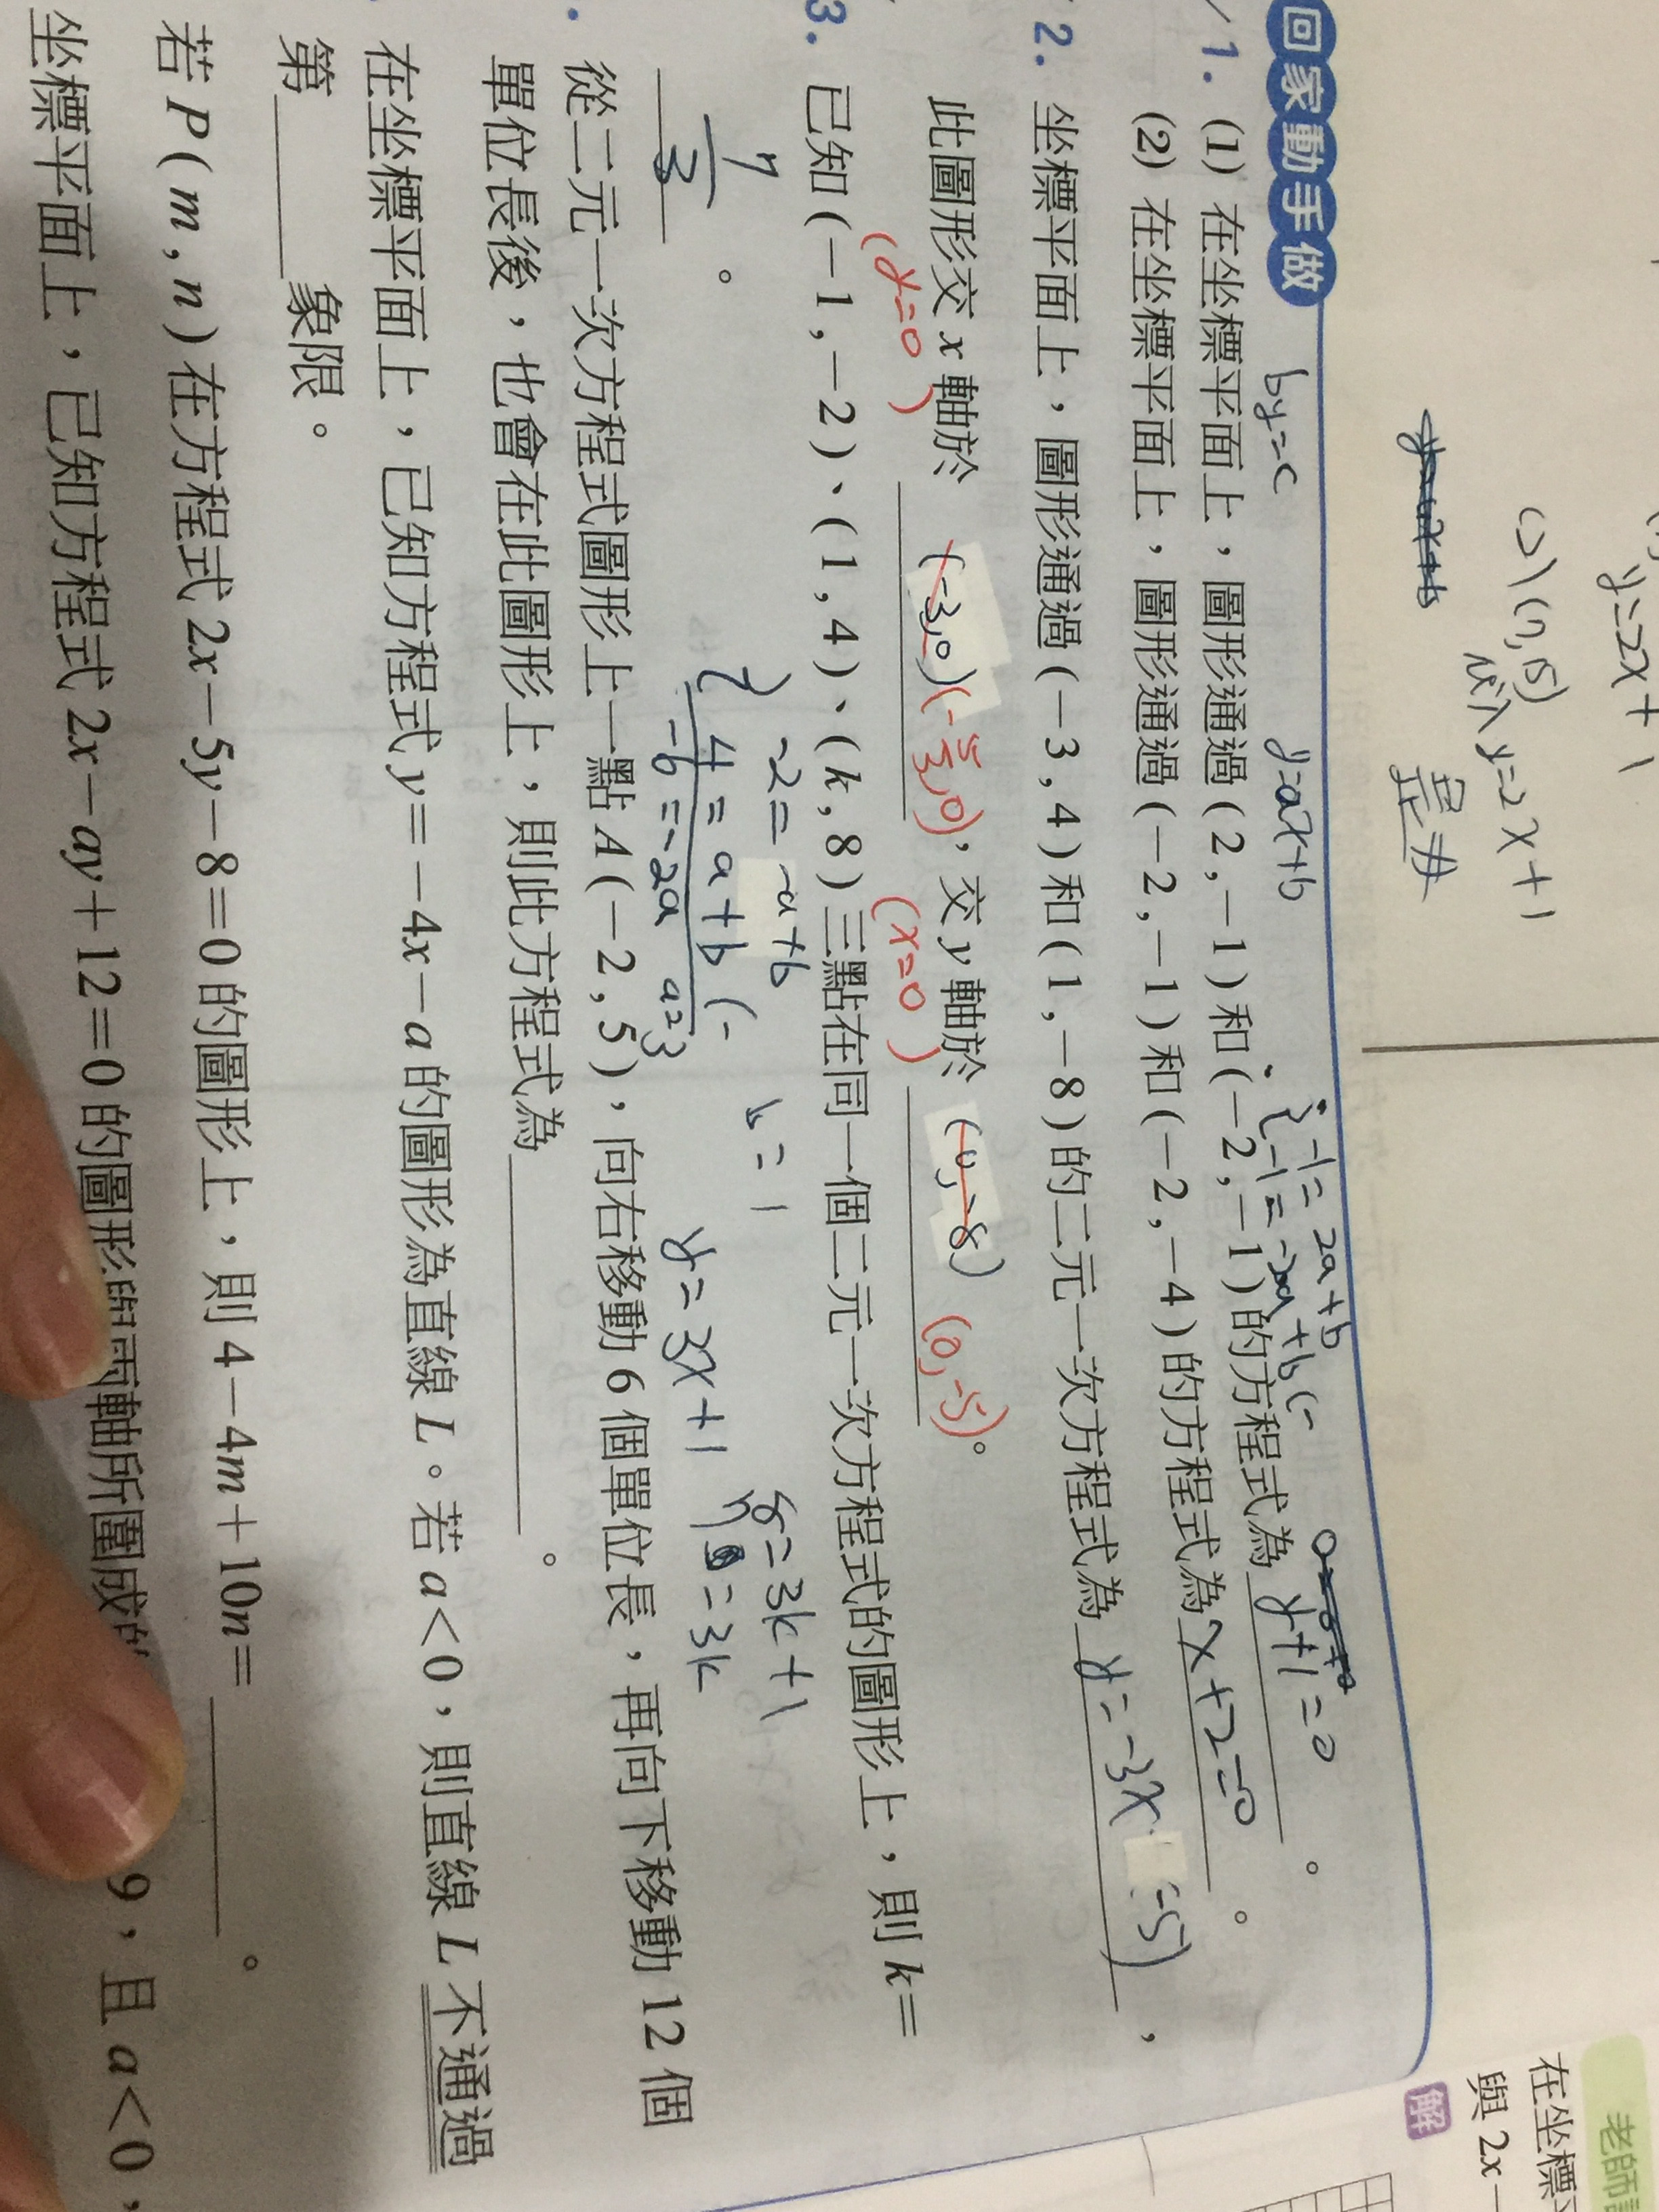 y=2x+1
(2) (7,15)
代入 y=2x+1
是井
在坐標
與 2x-
解
回家動手做
by=c
y=ax+b
-1=2a+b
-1=-2a+b(-
1. (1) 在坐標平面上,圖形通過(2,-1)和(-2,-1)的方程式為 y+1=0 。
(2) 在坐標平面上,圖形通過(-2,-1)和(-2,-4)的方程式為 x+2=0 。
2. 坐標平面上,圖形通過(-3,4)和(1,-8)的二元一次方程式為 y=-3x-5 ,
此圖形交 x 軸於 (-3,0) (-5/3,0),交 y 軸於 (0,-8) (0,-5)。
(y=0) (x=0)
3. 已知(-1,-2)、(1,4)、(k,8)三點在同一個二元一次方程式的圖形上,則 k=
7/3 。
-2=-a+b
4=a+b (-
-6=-2a a=3
b=1
y=3x+1
8=3k+1
7=3k
從二元一次方程式圖形上一點 A(-2,5),向右移動 6 個單位長,再向下移動 12 個
單位長後,也會在此圖形上,則此方程式為 。
在坐標平面上,已知方程式 y=-4x-a 的圖形為直線 L。若 a<0,則直線 L 不通過
第 象限。
若 P(m,n)在方程式 2x-5y-8=0 的圖形上,則 4-4m+10n= 。
坐標平面上,已知方程式 2x-ay+12=0 的圖形與兩軸所圍成的 9,且 a<0,